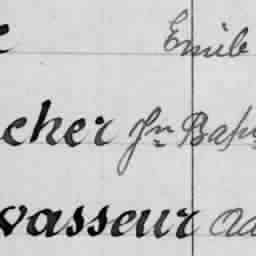 Emile
cher Jn Bap
vasseur Ad